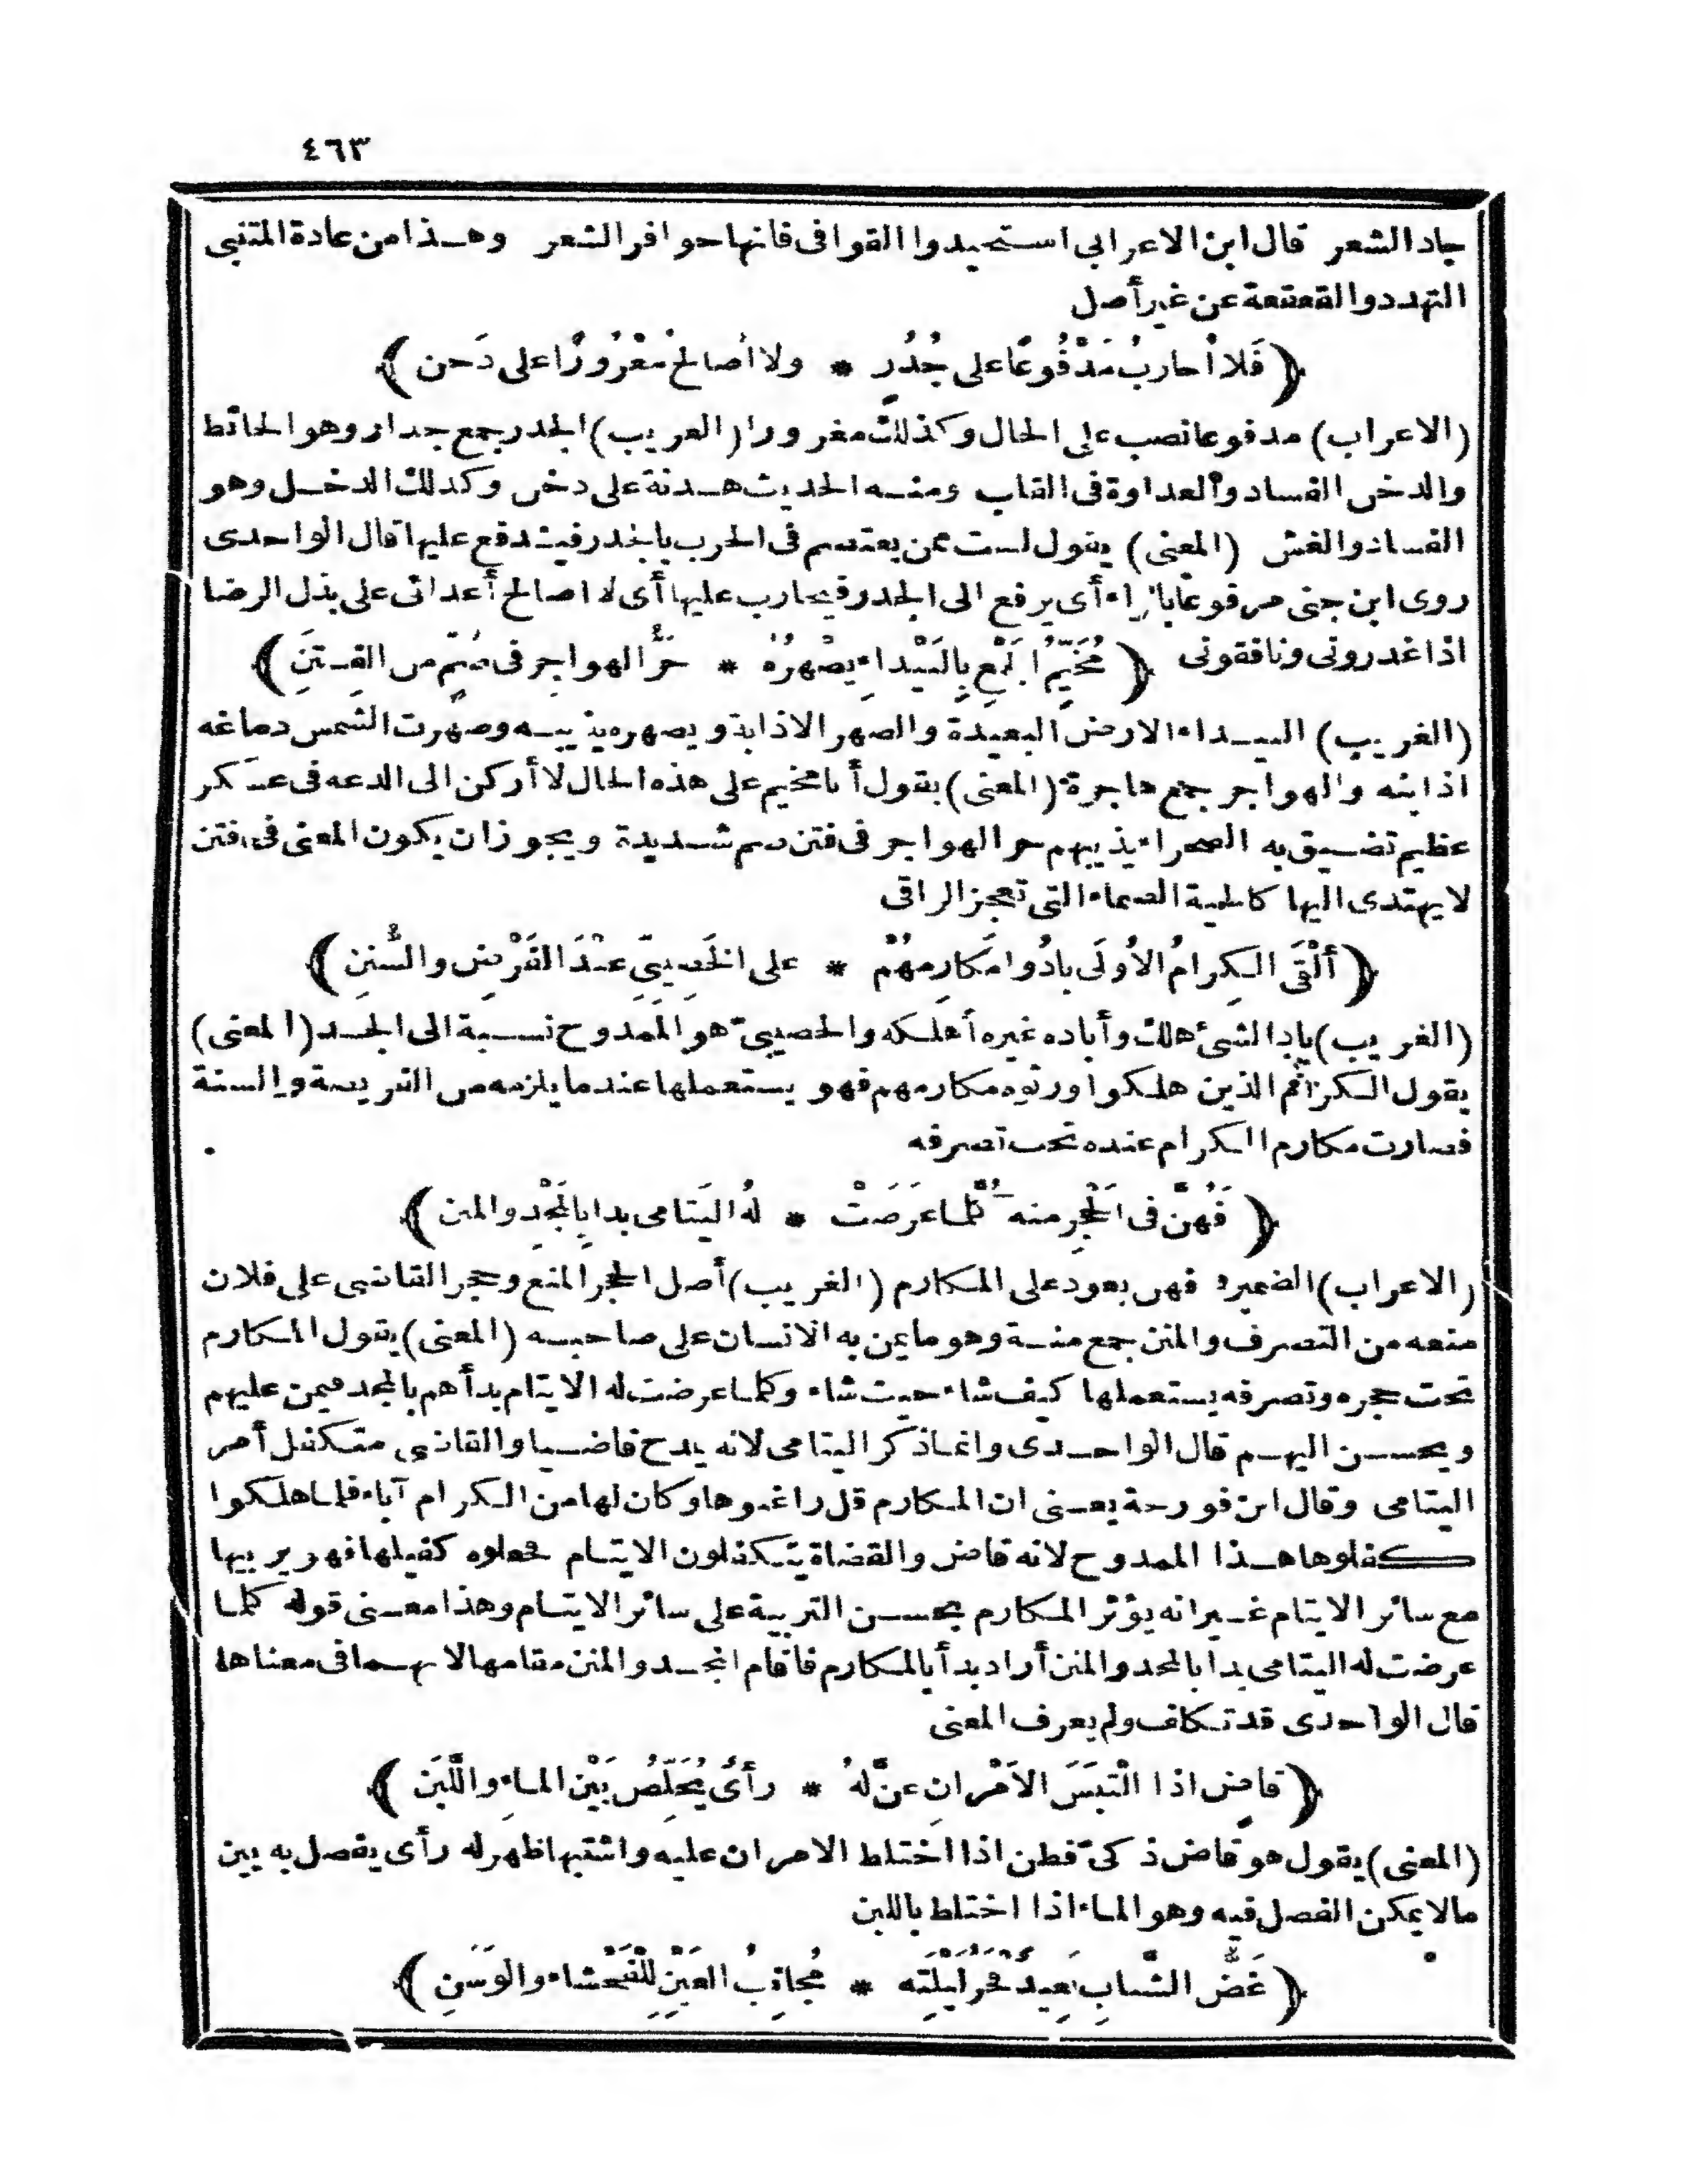 ٤٦٣
جاد الشعر قال ابن الاعرابي استجيدوا القوافى فانها حوافر الشعر وهذا من عادة المتنبى
التهدد والقعقعة عن غير أصل
﴿ فَلا أُحاربُ مَدْفُوعًا على جُدُرٍ * ولا أُصالحُ مَغْرُورًا على دَخن ﴾
(الاعراب) مدفوعا نصب على الحال وكذلك مغرورا (الغريب) الجدر جمع جدار وهو الحائط
والدخن الفساد والعداوة فى القلب ومنه الحديث هدنة على دخن وكذلك الدخل وهو
الفساد والغش (المعنى) يقول لست ممن يعتصم فى الحرب بالجدر فيندفع عليها قال الواحدى
روى ابن جنى مرفوعا بالراء أى يرفع الى الجدر فيحارب عليها أى لا اصالح أعدائى على بذل الرضا
اذا غدرونى ونافقونى ﴿ مُخَيِّمُ الجَمْعِ بِالبَيْداءِ يَصْهَرُهُ * حَرُّ الهواجِرِ فى صُمٍّ من الفِتَنِ ﴾
(الغريب) البيداء الارض البعيدة والصهر الاذابة ويصهره يذيبه وصهرت الشمس دماغه
اذابته والهواجر جمع هاجرة (المعنى) يقول أنا مخيم على هذه الحال لا أركن الى الدعه فى عسكر
عظيم تضيق به الصحراء يذيبهم حر الهواجر فى فتن صم شديدة ويجوز ان يكون المعنى فى فتن
لا يهتدى اليها كالحية الصماء التى تعجز الراقى
﴿ أَلْقَى الكِرامُ الاُولَى بادُوا مَكارِمَهُمْ * على الخَصِيبِيِّ عنْدَ الفَرْضِ والسُّنَنِ ﴾
(الغريب) باد الشئ هلك وأباده غيره أهلكه والخصيبىّ هو الممدوح نسبة الى الجد (المعنى)
يقول الكرائم الذين هلكوا ورثوه مكارمهم فهو يستعملها عند ما يلزمه من الفريضة والسنة
فصارت مكارم الكرام عنده تحت تصرفه
﴿ فَهُنَّ فى الحَجْرِ منه كُلَّما عَرَضَتْ * لهُ اليَتَامى بدا بِالمَجْدِ والمنن ﴾
(الاعراب) الضمير فى فهن يعود على المكارم (الغريب) أصل الحجر المنع وحجر القاضى على فلان
منعه من التصرف والمنن جمع منة وهو ما يمن به الانسان على صاحبه (المعنى) يقول المكارم
تحت حجره وتصرفه يستعملها كيف شاء حيث شاء وكلما عرضت له الايتام بدأهم بالمجد فيمن عليهم
ويحسن اليهم قال الواحدى وانما ذكر اليتامى لانه يمدح قاضيا والقاضى متكفل أمر
اليتامى وقال ابن فورجة يعنى ان المكارم قل راغبوها وكان لها من الكرام آباء فلما هلكوا
كفلوها هذا الممدوح لانه قاض والقضاة يتكفلون الايتام فجعلوه كفيلها فهو يربيها
مع سائر الايتام غير انه يؤثر المكارم بحسن التربية على سائر الايتام وهذا معنى قوله كلما
عرضت له اليتامى بدا بالمجد والمنن أراد بدأ بالمكارم فأقام المجد والمنن مقامها لانهما فى معناها
قال الواحدى قد تكلف ولم يعرف المعنى
﴿ قاضٍ اذا الْتَبَسَ الاَمْرانِ عنَّ لهُ * رأىٌ يُخَلِّصُ بَيْن الماءِ واللَّبَنِ ﴾
(المعنى) يقول هو قاض ذكىّ فطن اذا اختلط الامران عليه واشتبها ظهر له رأى يفصل به بين
مالا يمكن الفصل فيه وهو الماء اذا اختلط باللبن
﴿ غَضُّ الشَّبابِ بَعِيدٌ فَجْرُ لَيْلَتِه * مُجانِبُ العَيْنِ لِلْفَحْشاءِ والوَسَنِ ﴾